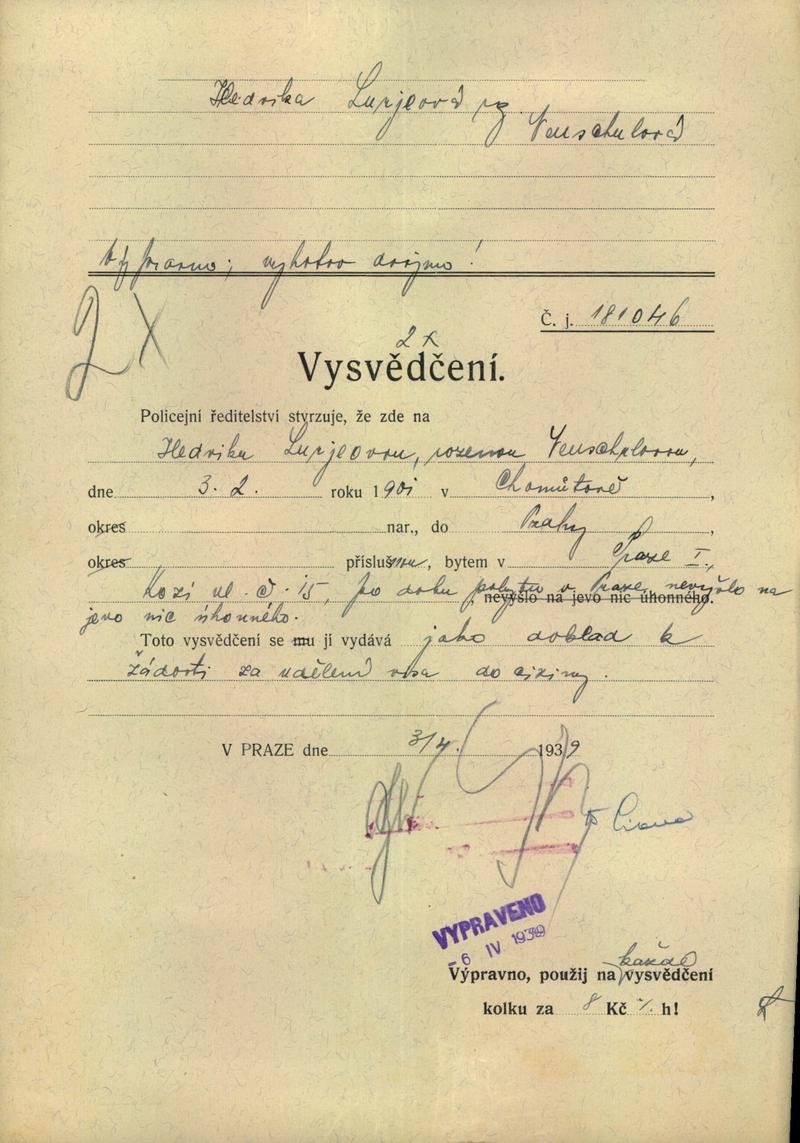 Hedvika Lurjeová rz.
Neuschulová
Výpravno; vyhotov dvojmo!
2 X
Č. j. 181046
2 x
Vysvědčení.
Policejní ředitelství stvrzuje, že zde na
Hedviku Lurjeovou, rozenou Neuschulovou,
dne 3. 2. roku 1901 v Chomútově,
okres nar., do Prahy,
okres příslušnou, bytem v Praze I.,
Kozí ul. č. 15, po dobu pobytu v Praze nevyšlo na
nevyšlo na jevo nic úhonného.
jevo nic úhonného.
Toto vysvědčení se mu jí vydává jako doklad k
žádosti za udělení visa do ciziny.
V PRAZE dne 3/4. 1939
VYPRAVENO
- 6 IV 1939
každé
Výpravno, použij na vysvědčení
kolku za 8 Kč h!